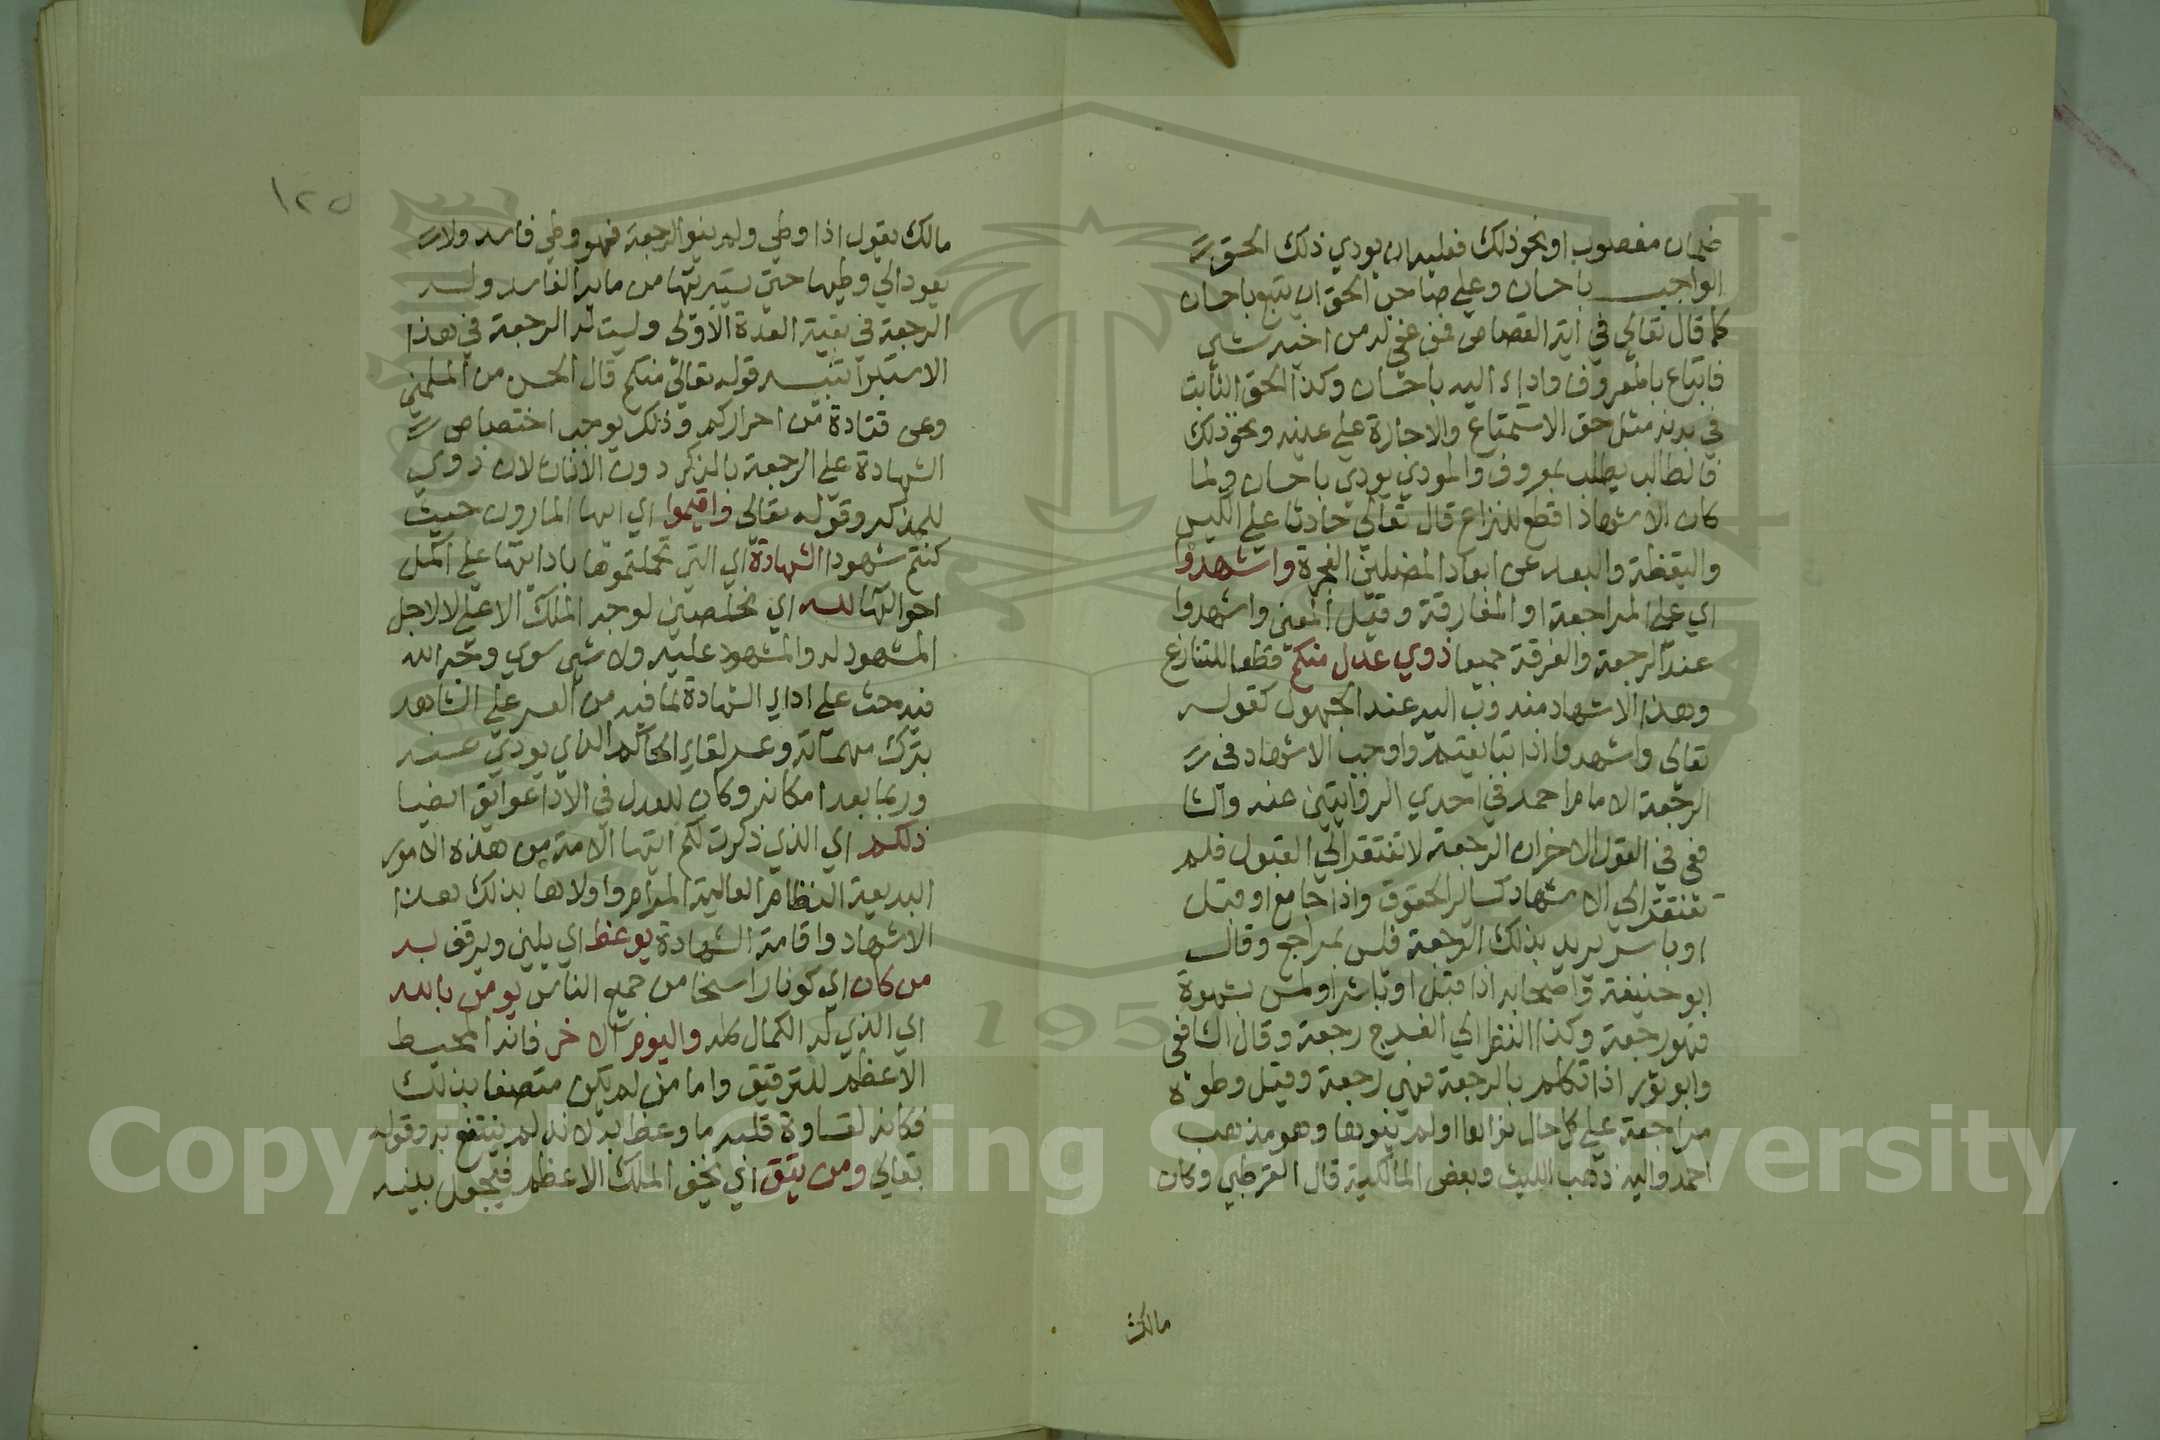 ضمان مغصوب او نحو ذلك فعليه ان يودي ذلك الحق
الواجب باحسان وعلي صاحب الحق ان يتبع باحسان
كما قال تعالي في آية القصاص فمن عفي له من اخيه شي
فاتباع بالمعروف واداء اليه باحسان وكذا الحق الثابت
في بدنه مثل حق الاستمتاع والاجارة علي عينه ونحو ذلك
فالطالب يطلب بمعروف والمودي يودي باحسان ولما
كان الاشهاد اقطع للنزاع قال تعالي حادثا علي الكيس
واليقظة والبعد عن افعاد المضلين الفجرة واشهدوا
اي علي المراجعة او المفارقة وقيل المعني واشهدوا
عند الرجعة والفرقة جميعا ذوي عدل منكم قطعا للتنازع
وهذا الاشهاد مندوب اليه عند الجمهول كقوله
تعالي واشهدوا اذا تبايعتم واوجب الاشهاد في
الرجعة الامام احمد في احدي الروايتين عنه والشا
فعي في القول الاخر ان الرجعة لا تفتقر الي القبول فلم
تفتقر الي الاشهاد كساير الحقوق واذا جامع او قبل
او باشر يريد بذلك الرجعة فليس بمراجع وقال
ابو حنيفة واصحابه اذا قبل او باشر او لمس بشهوة
فهو رجعة وكذا النظر الي الفرج رجعة وقال الشافعي
وابو ثور اذا تكلم بالرجعة فهي رجعة وقيل وطوه
مراجعة علي كل حال نواها او لم ينوها وهو مذهب
احمد واليه ذهب الليث وبعض المالكية قال القرطبي وكان
مالك
١٢٥
مالك يقول اذا وطي ولم ينو الرجعة فهو وطي فاسد ولا
يعود الي وطيها حتي يستبرئها من مايه الفاسد وله
الرجعة في بقية العدة الاولي وليست له الرجعة في هذا
الاستبرا تنبيه قوله تعالي منكم قال الحسن من المسلمين
وعن قتادة من احراركم وذلك يوجب اختصاص
الشهادة علي الرجعة بالذكر دون الاناث لان ذوي
للمذكر وقوله تعالي واقيموا اي ايها المارون حيث
كنتم شهودا الشهادة اي التي تحملتموها بادايها علي اكمل
احوالها لله اي مخلصين لوجه الملك الاعلي لا لاجل
المشهود له والمشهود عليه ولا شي سوي وجه الله
فيه حث علي اداي الشهادة لما فيه من العسر علي الشاهد
بترك مهماته وعسر لقاي الحاكم الذي يودي عنده
وربما بعد امكانه وكان للعدل في الادا عوايق ايضا
ذلكم اي الذي ذكرت لكم ايتها الامة من هذه الامور
البديعة النظام العالية المرام واولاها بذلك هذا
الاشهاد واقامة الشهادة يوعظ اي يلين ويرقق به
من كان اي كونا راسخا من جميع الناس يومن بالله
اي الذي له الكمال كله واليوم الاخر فانه المحيط
الاعظم للترقيق واما من لم يكن متصفا بذلك
فكانه لقساوة قلبه ما وعظ به لانه لم ينتفع به وقوله
تعالي ومن يتق اي يخف الملك الاعظم فيجعل بينه
Copyright © King Saud University
1957